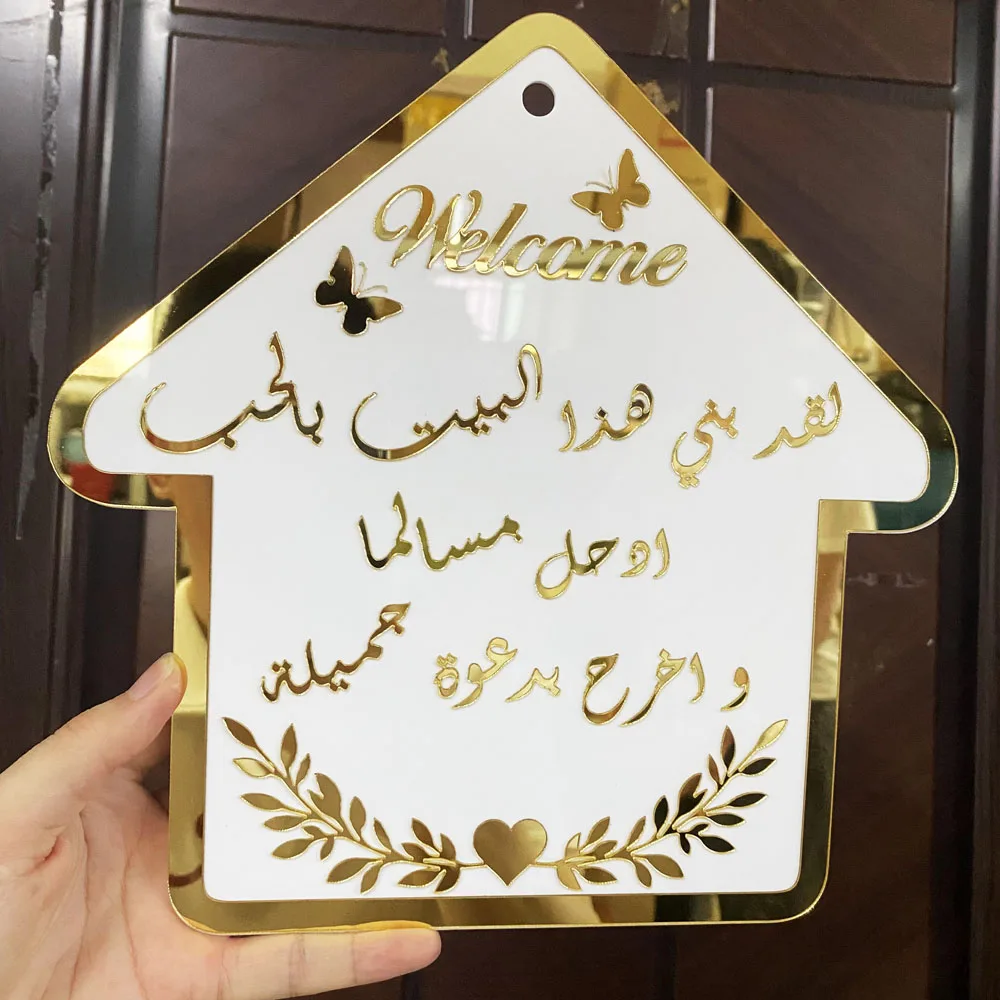 Welcome
لقد بني هذا البيت بالحب
ادخل مسالما
و اخرج بدعوة جميلة